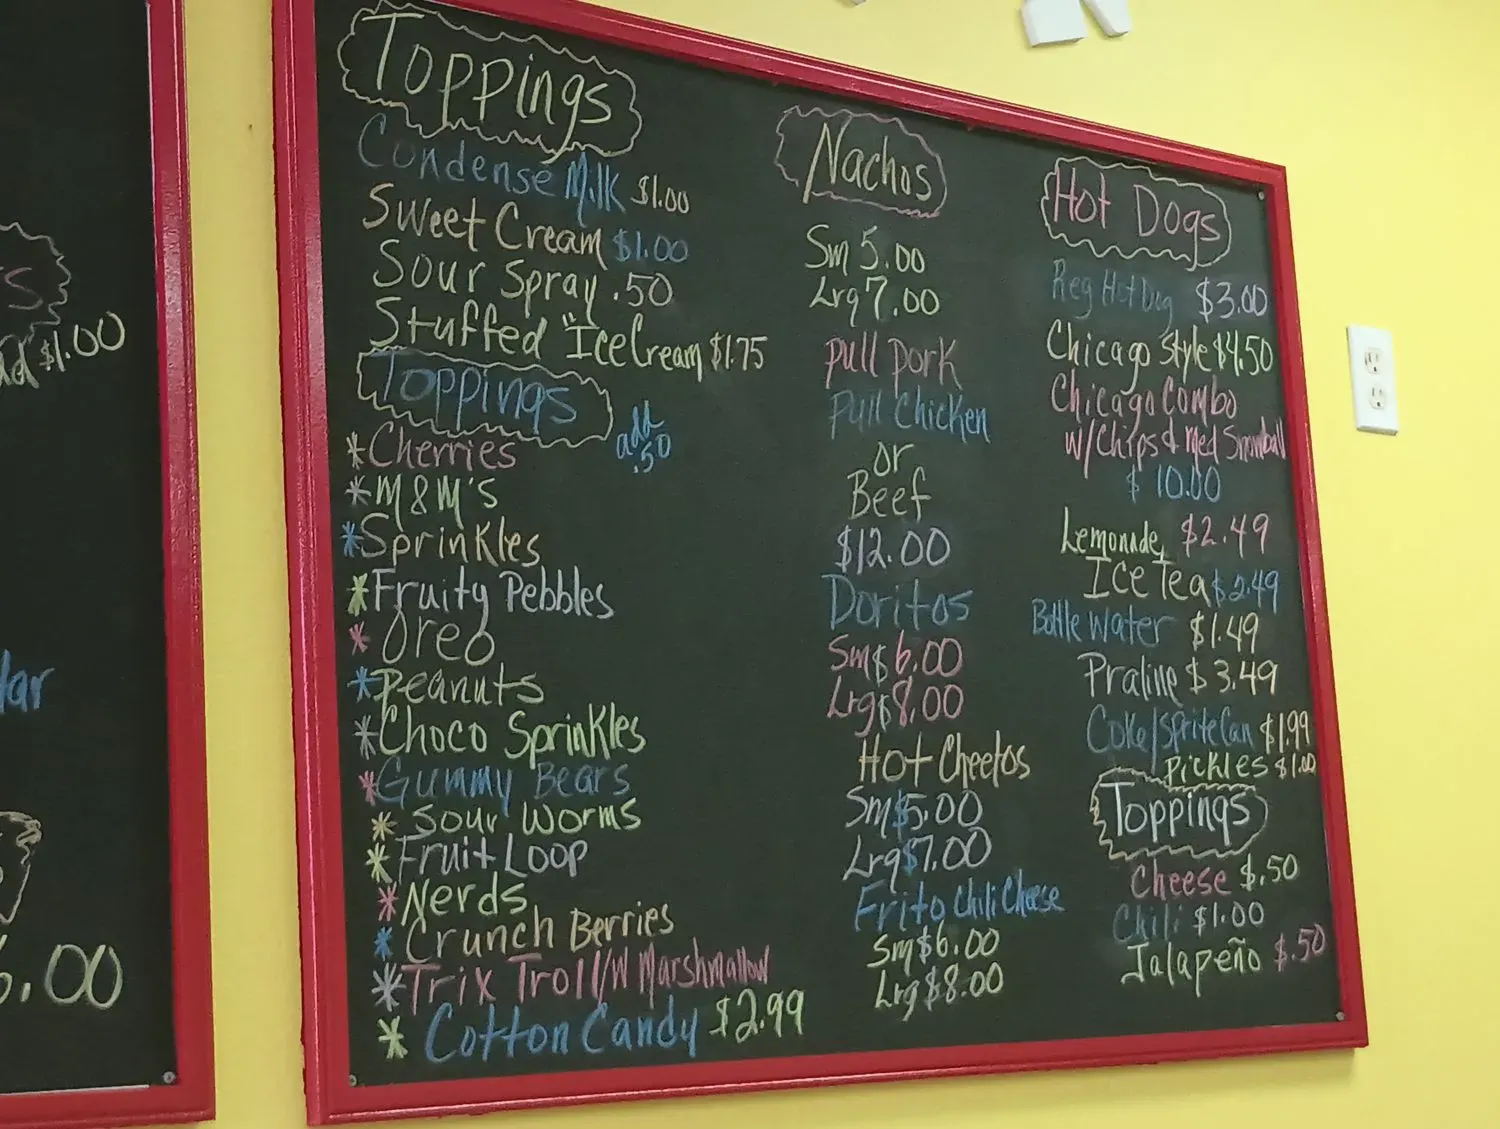 s
ad $1.00
lar
5.00
Toppings
Condense Milk $1.00
Sweet Cream $1.00
Sour Spray .50
Stuffed "Ice Cream $1.75
Toppings
add
.50
*Cherries
*M&M's
*Sprinkles
*Fruity Pebbles
*Oreo
*Peanuts
*Choco Sprinkles
*Gummy Bears
*Sour Worms
*Fruit Loop
*Nerds
*Crunch Berries
*Trix Troll/W Marshmallow
*Cotton Candy $2.99
Nachos
Sm 5.00
Lrg 7.00
Pull Pork
Pull Chicken
or
Beef
$12.00
Doritos
Sm $6.00
Lrg $8.00
Hot Cheetos
Sm $5.00
Lrg $7.00
Frito Chili Cheese
Sm $6.00
Lrg $8.00
Hot Dogs
Reg Hot Dog $3.00
Chicago Style $4.50
Chicago Combo
w/Chips & Med Snowball
$10.00
Lemonade $2.49
Ice Tea $2.49
Bottle Water $1.49
Praline $3.49
Coke/Sprite Can $1.99
Pickles $1.00
Toppings
Cheese $.50
Chili $1.00
Jalapeño $.50